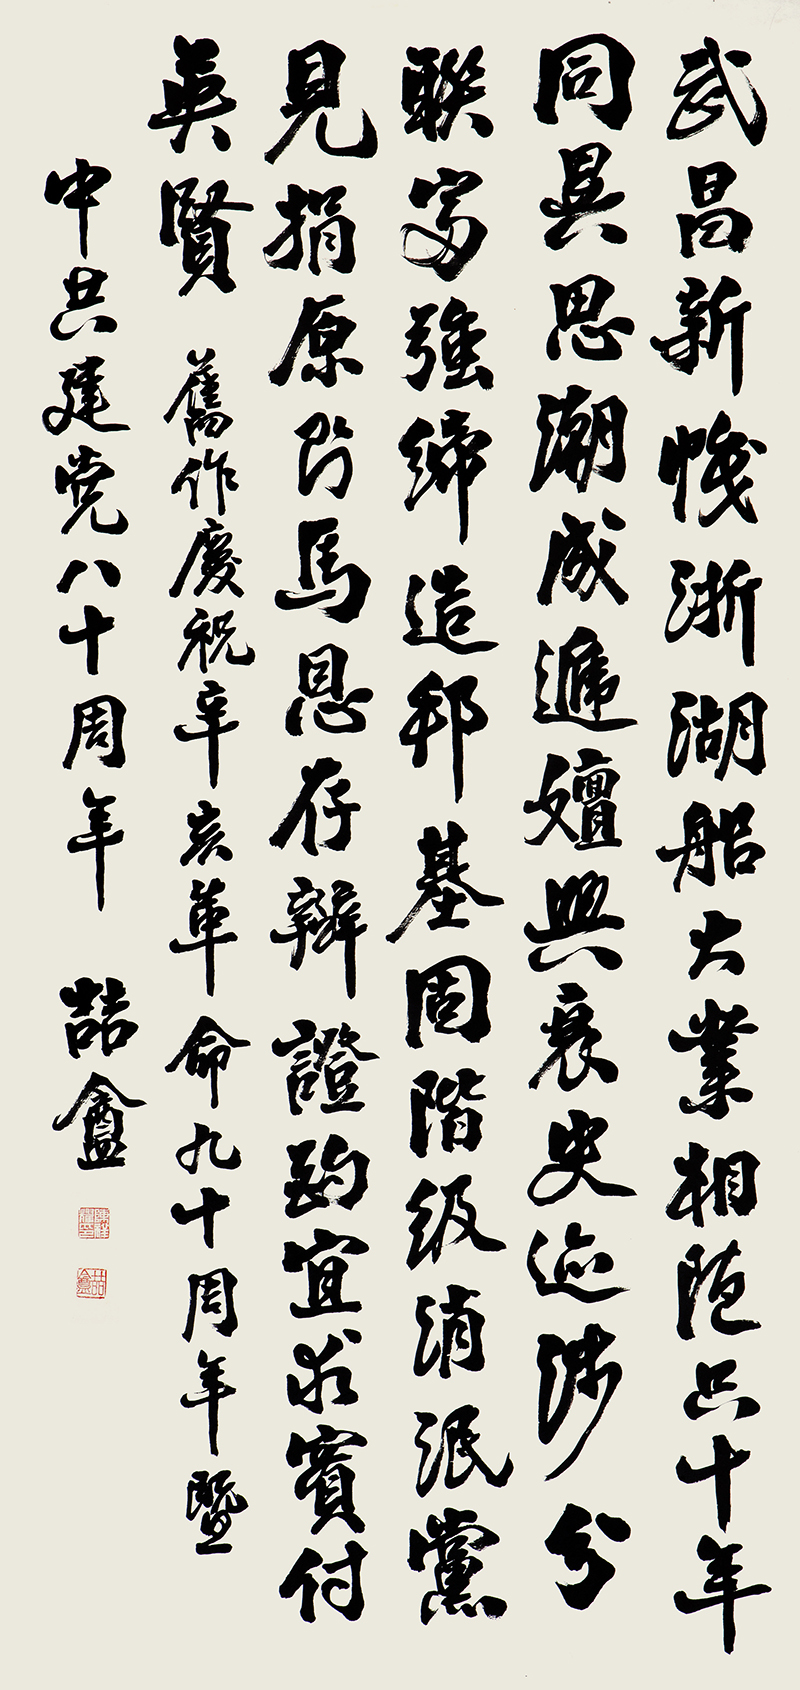 武昌新幟浙湖船大業相隨只十年
同異思潮成遞嬗興衰史迹涉分
聯富強締造邦基固階級消泯黨
見捐原則馬恩存辯證趨宜求實付
英賢 舊作慶祝辛亥革命九十周年暨
中共建党八十周年 喆盦